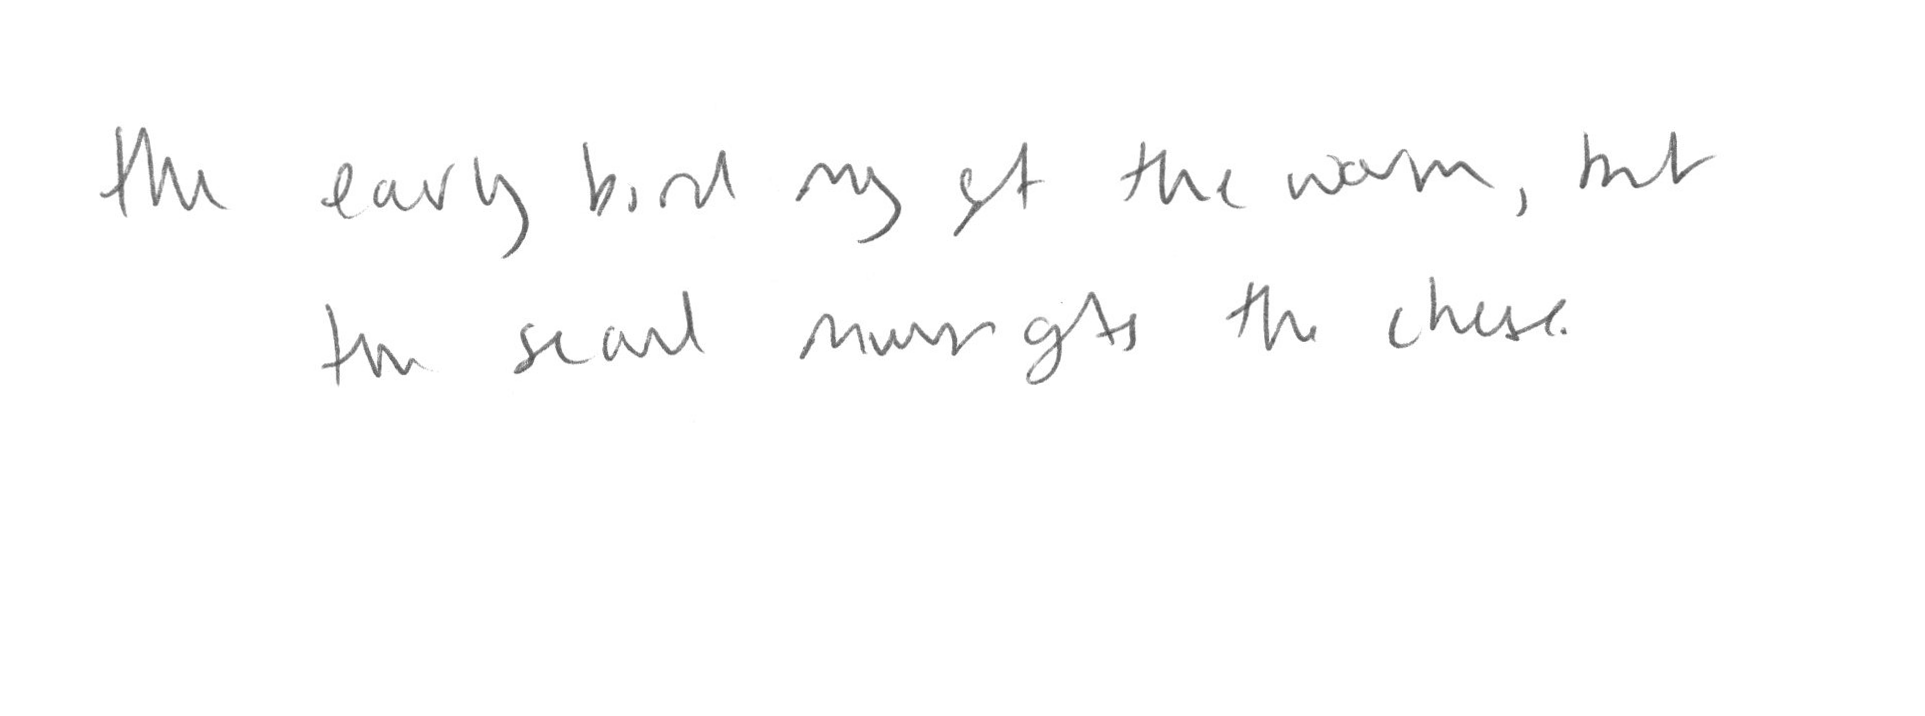 the early bird may get the worm, but
the second mouse gets the cheese.